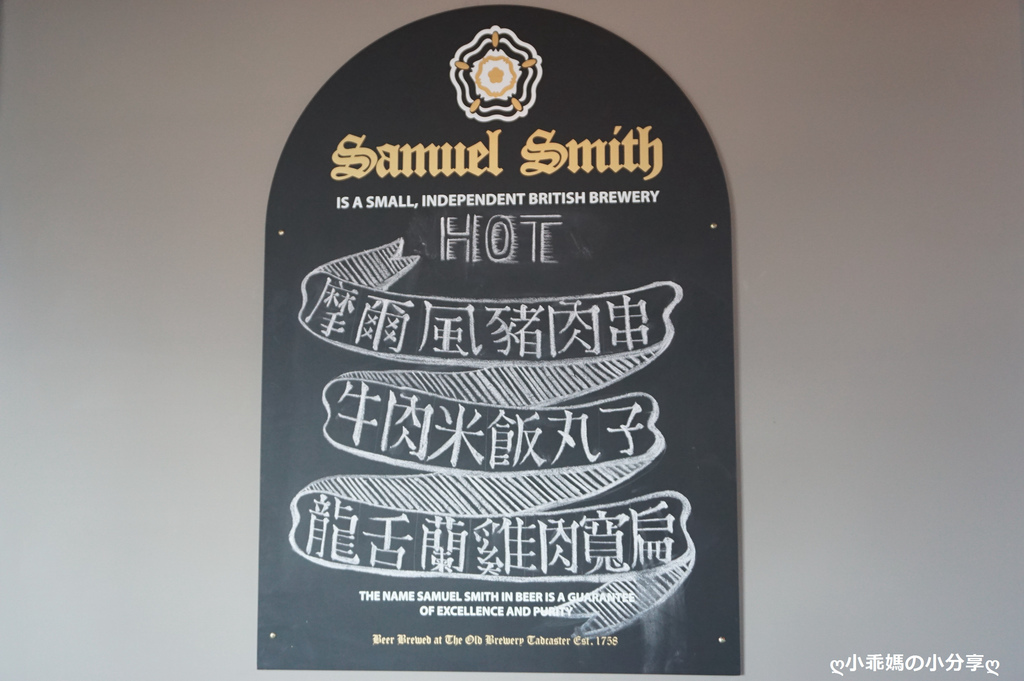 Samuel Smith
IS A SMALL, INDEPENDENT BRITISH BREWERY
HOT
摩爾風豬肉串
牛肉米飯丸子
龍舌蘭雞肉寬扁
THE NAME SAMUEL SMITH IN BEER IS A GUARANTEE
OF EXCELLENCE AND PURITY
Beer Brewed at The Old Brewery Tadcaster Est. 1758
ღ小乖媽の小分享ღ